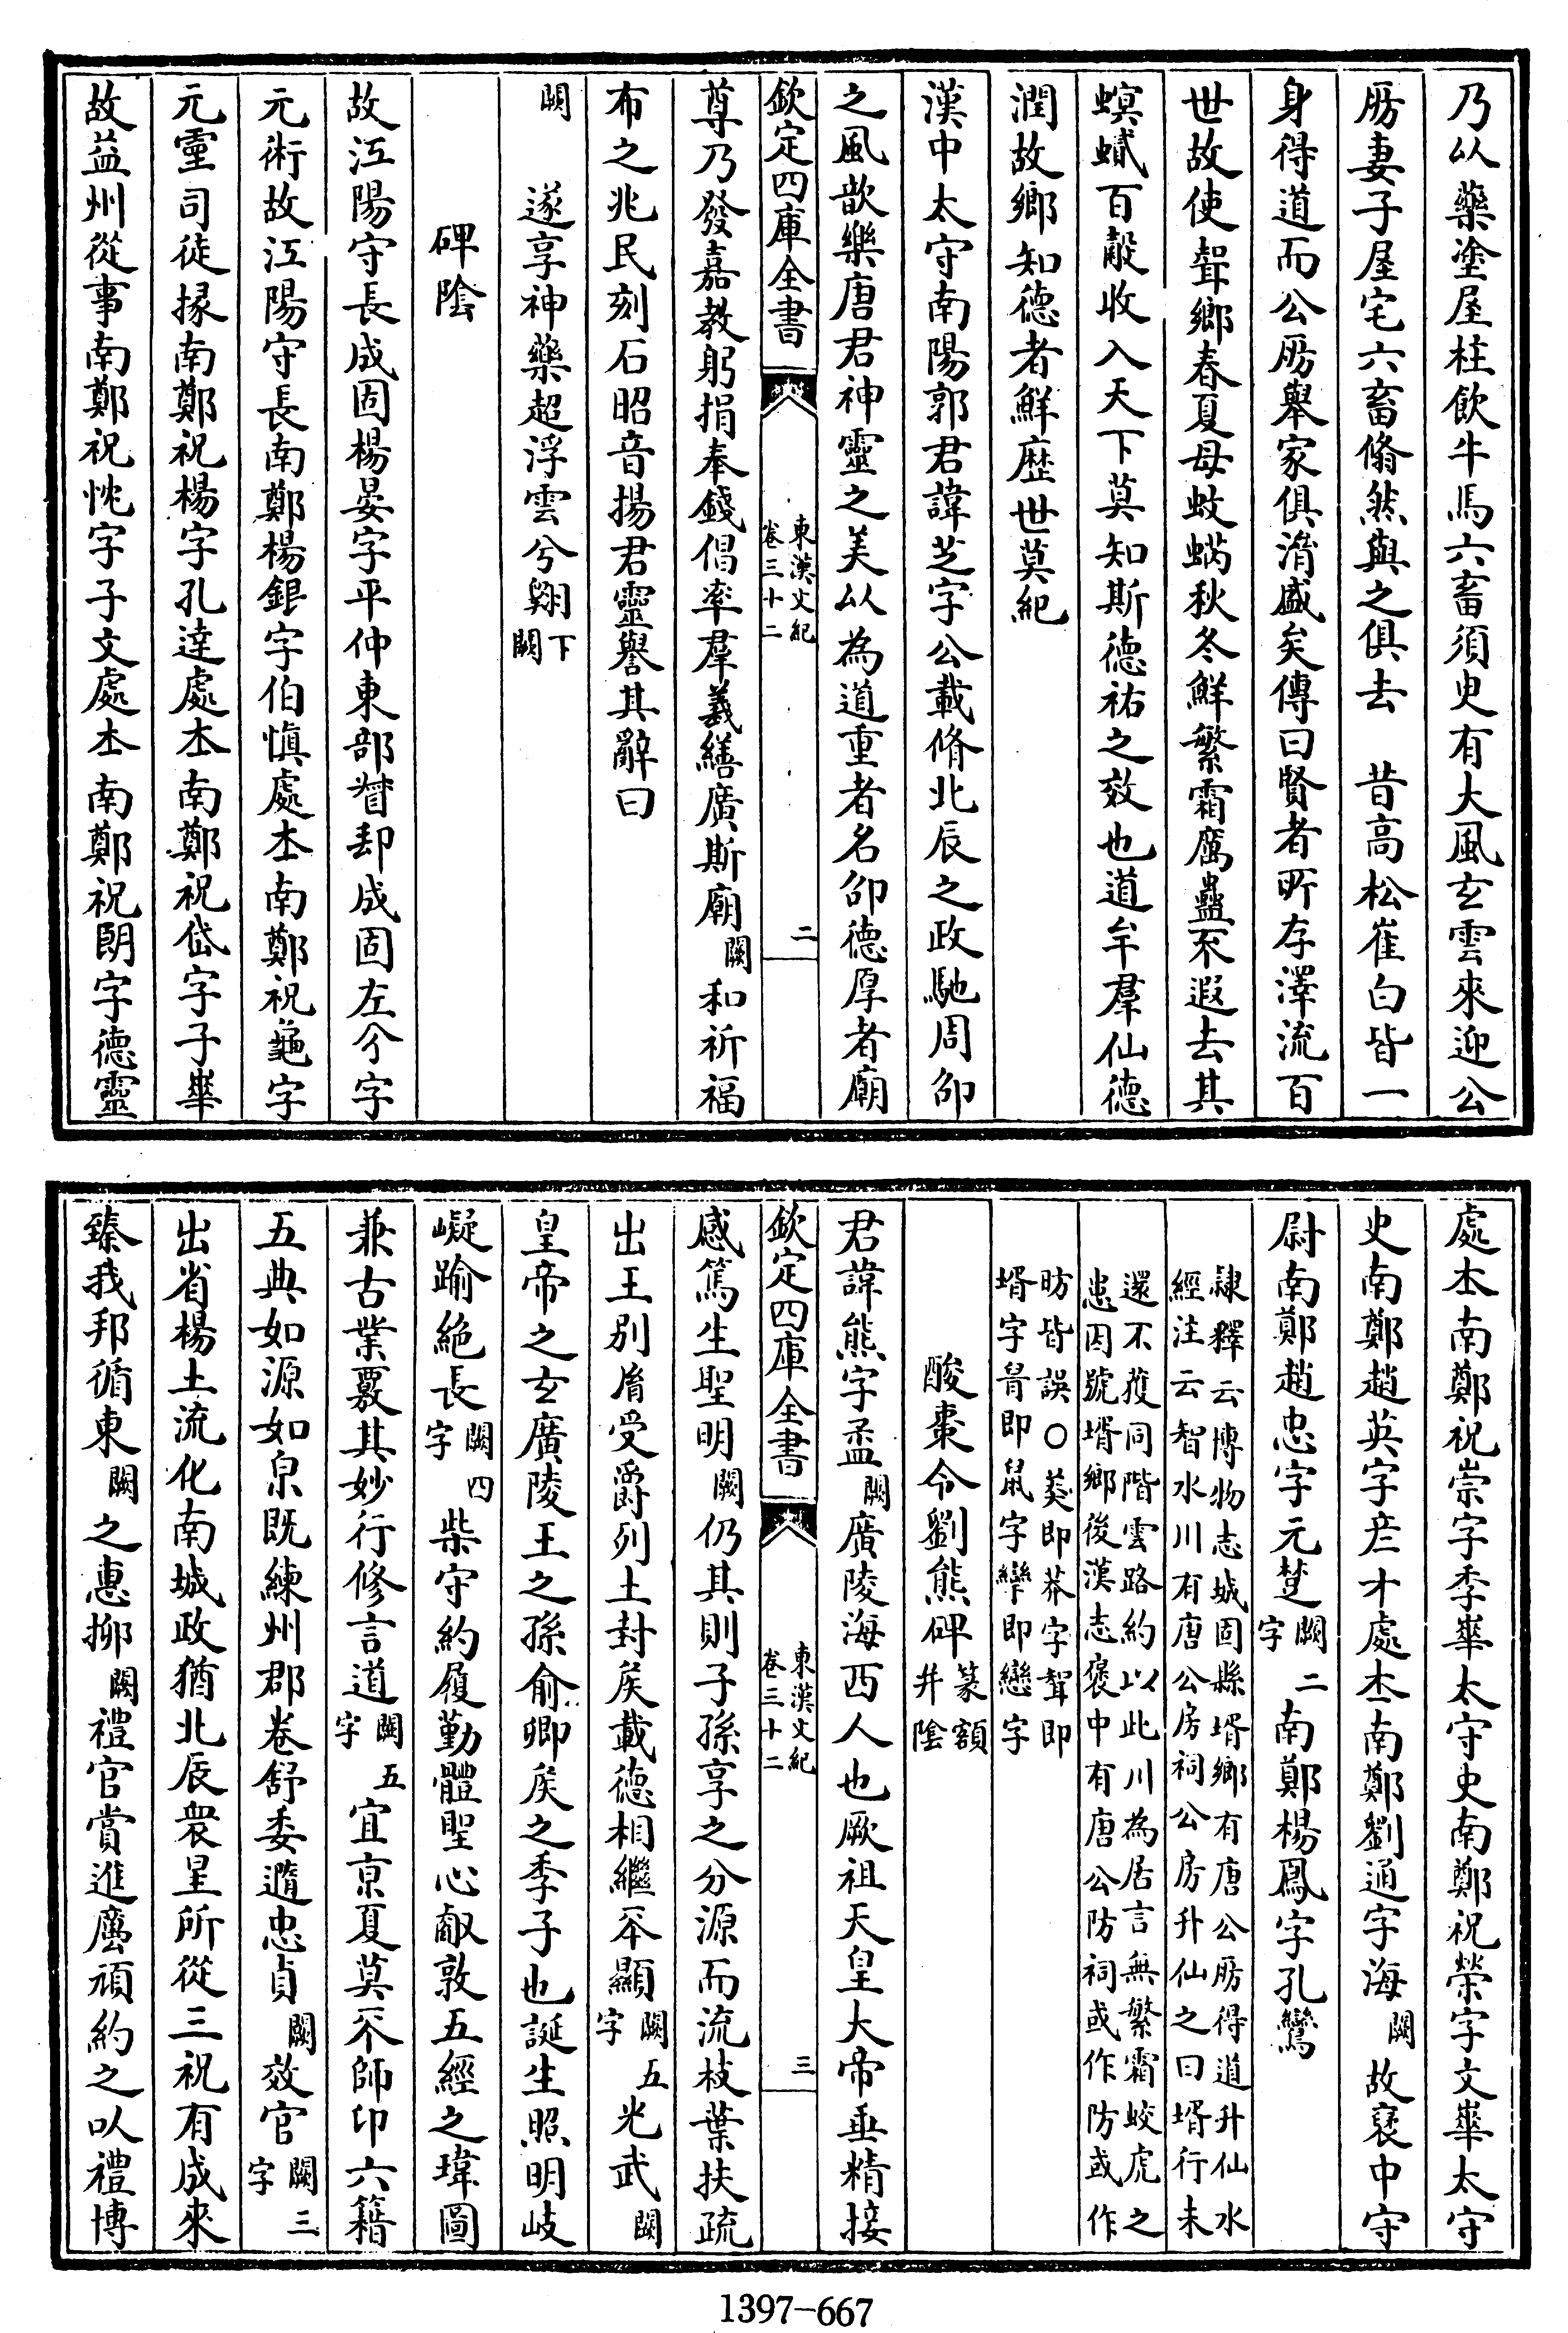 乃以藥塗屋柱飲牛馬六畜須臾有大風玄雲來迎公
昉妻子屋宅六畜翛然與之俱去　昔高松崔白皆一
身得道而公昉舉家俱濟盛矣傳曰賢者所存澤流百
世故使聟鄉春夏毋蚊蜹秋冬鮮繁霜厲蠱不遐去其
螟蟘百穀收入天下莫知斯德祐之效也道牟羣仙德
潤故鄉知德者鮮歴世莫紀
漢中太守南陽郭君諱芝字公載脩北辰之政馳周邵
之風歆樂唐君神靈之美以為道重者名邵德厚者廟
欽定四庫全書
東漢文紀
卷三十二
二
尊乃發嘉教躬捐奉錢倡率羣義繕廣斯廟闕和祈福
布之兆民刻石昭音揚君靈譽其辭曰
闕　遂享神藥超浮雲兮翱下闕
碑陰
故江陽守長成固楊晏字平仲東部督邮成固左介字
元術故江陽守長南鄭楊銀字伯慎處士南鄭祝龜字
元靈司徒掾南鄭祝楊字孔達處士南鄭祝岱字子華
故益州從事南鄭祝忱字子文處士南鄭祝朗字德靈
處士南鄭祝崇字季華太守史南鄭祝榮字文華太守
史南鄭趙英字彥才處士南鄭劉通字海闕故褒中守
尉南鄭趙忠字元楚闕二字南鄭楊鳳字孔鸞
隷釋云博物志城固縣壻鄉有唐公昉得道升仙水
經注云智水川有唐公房祠公房升仙之日壻行未
還不獲同階雲路約以此川為居言無繁霜蛟虎之
患因號壻鄉後漢志褒中有唐公防祠或作防或作
昉皆誤○䓤即芥字聟即
壻字䑕即鼠字孿即戀字
酸棗令劉熊碑篆額并陰
君諱熊字孟闕廣陵海西人也厥祖天皇大帝垂精接
欽定四庫全書
東漢文紀
卷三十二
三
感篤生聖明闕仍其則子孫享之分源而流枝葉扶疏
出王别胤受爵列土封侯載德相繼丕顯闕五字光武闕
皇帝之玄廣陵王之孫俞鄉侯之季子也誕生照明岐
嶷踰絶長闕四字柴守約履勤體聖心叡敦五經之瑋圖
兼古業覈其妙行修言道闕五字宜京夏莫不師卬六籍
五典如源如泉既練州郡卷舒委遹忠貞闕效官闕三字
出省楊土流化南城政猶北辰衆星所從三祝有成來
臻我邦循東闕之惠抑闕禮官賞進厲頑約之以禮博
1397-667